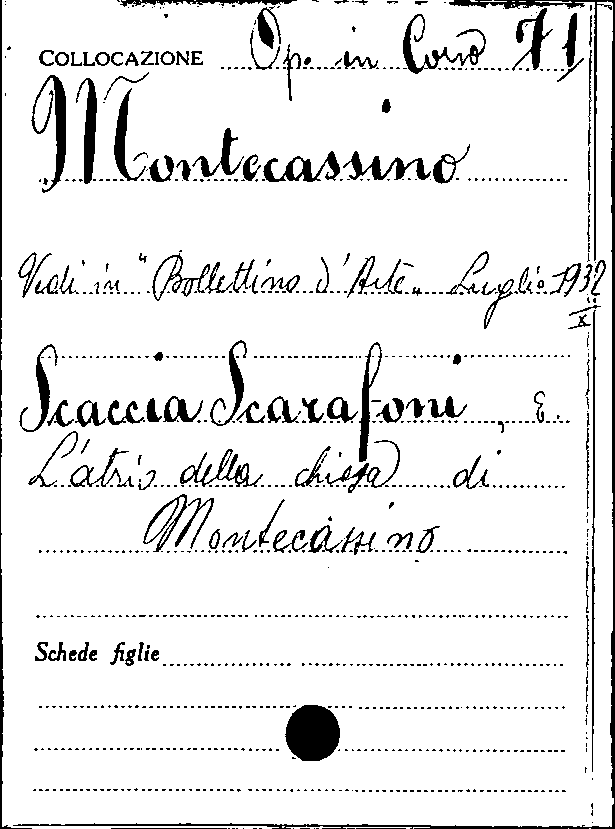 COLLOCAZIONE Op. in Corso 71
Montecassino
Vedi in "Bollettino d'Arte" Luglio 1932
X
Scaccia Scarafoni, E.
L'atrio della chiesa di
Montecassino
Schede figlie